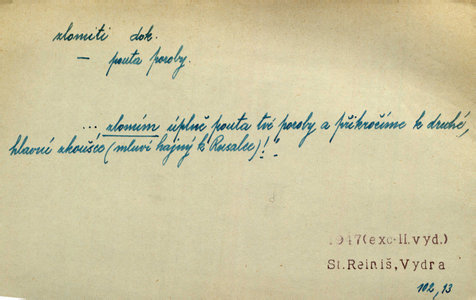 zlomiti dok.
— pouta poroby.
... zlomím úplně pouta tvé poroby a přikročíme k druhé,
hlavní zkoušce (mluví hajný k Rusalce)!"
1947 (exc. II. vyd.)
St. Reiniš, Vydra
102,13